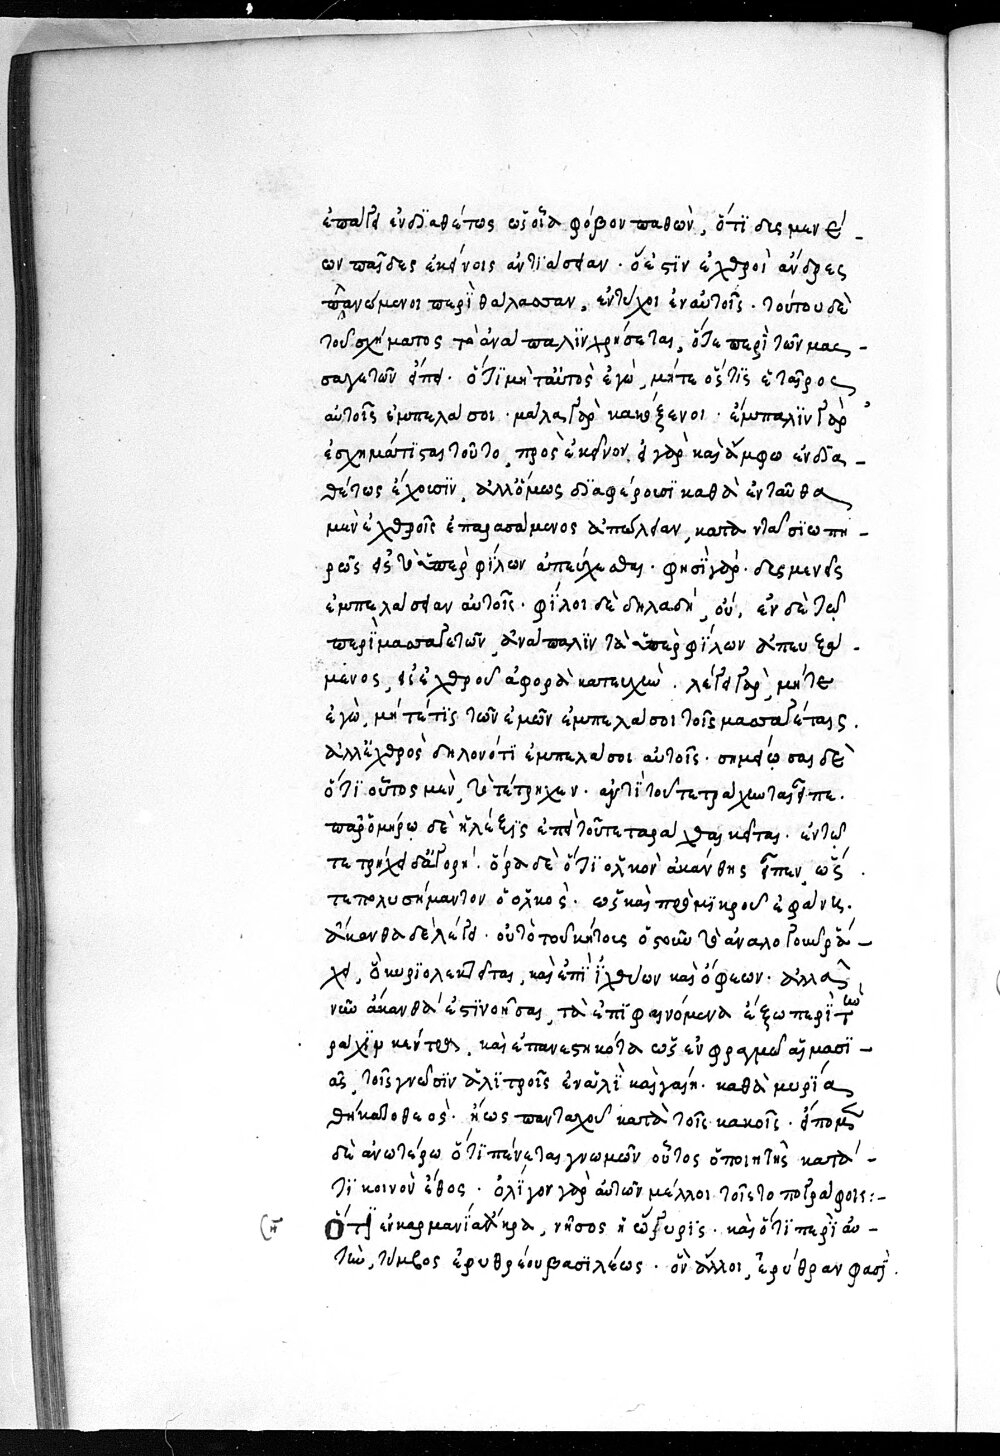 ἐπάγει ἐνδιαθέτως ὡς οἷα φόβον παθὼν, ὅτι δυσμενέ-
ων παῖδες ἐκείνοις ἀντιάσειαν. ὅ ἐστιν ἐχθροὶ ἄνδρες
πλανώμενοι περὶ θάλασσαν, ἐντύχοι ἐν αὐτοῖς. τούτου δὲ
τοῦ σχήματος τὸ ἀνάπαλιν χρήσεται, ὅτε περὶ τῶν μασ-
σαγετῶν εἴπῃ. ὅτι μὴτ' αὐτὸς ἐγὼ, μήτε ὅστις ἑταῖρος
αὐτοῖς ἐμπελάσοι. μάλα γὰρ κακόξενοι. ἔμπαλιν γὰρ
ἐσχημάτισται τοῦτο, πρὸς ἐκεῖνον. εἰ γὰρ καὶ ἄμφω ἐνδια-
θέτως ἔχουσιν, ἀλλ' ὅμως διαφέρουσι καθὰ ἐνταῦθα
μὲν ἐχθροῖς ἐπαρασάμενος ἀπώλειαν, κατὰ
ρῶς εἰς τὸ ὑπὲρ φίλων ἀπεύχεσθαι. φησὶ γάρ. δυσμενεῖς
ἐμπελάσειαν αὐτοῖς. φίλοι δὲ δηλαδή, οὔ. ἐν δὲ τῷ
περὶ μασσαγετῶν, ἀνάπαλιν τὰ ὑπὲρ φίλων ἀπευξά-
μενος, εἰς ἐχθροὺς ἀφορᾷ κατευχήν. λέγει γὰρ, μήτε
ἐγὼ, μήτέ τις τῶν ἐμῶν ἐμπελάσοι τοῖς μασσαγέταις.
ἀλλ' ἐχθρὸς δηλονότι ἐμπελάσοι αὐτοῖς. σημείωσαι δὲ
ὅτι οὗτος μὲν, τὸ τέτρηχεν. ἀντὶ τοῦ τετράχυται εἶπε.
παρ' ὁμήρῳ δὲ ἡ λέξις ἐπὶ τοῦ τεταράχθαι κεῖται. ἐν τῷ
τετρήχει δ' ἀγορή. ὅρα δὲ ὅτι ὁλκὸν ἀκάνθης εἶπεν, ὥστε
τε πολυσήμαντον ὁ ὁλκὸς. ὡς καὶ πρὸ μικροῦ ἐφάνη.
ἄκανθα δὲ λέγει. οὐ τὸ τοῦ κήτους ὀστοῦν τὸ ἀνάλογον ῥά-
χει, ὃ κυριολεκτεῖται, καὶ ἐπὶ ἰχθύων καὶ ὄφεων. ἀλλὰ
νῦν ἄκανθά ἐστι νοῆσαι, τὰ ἐπιφαινόμενα ἔξω περὶ τὴν
ράχιν κέντρα, καὶ ἐπανεστηκότα ὡς ἐν φραγμῷ αἱμασι-
ᾶς, τοῖς γνώσιν ἀλιτροῖς ἐν ἁλὶ καὶ γαίῃ. καθὰ μυρία
θῆκατο θεός. ἤως πανταχοῦ κατὰ τοῖς κακοῖς. εἴπομεν
δὲ ἀνωτέρω ὅτι πένεται γνωμῶν οὗτος ὁ ποιητὴς κατά
τι κοινὸν ἔθος. ὀλίγον γὰρ αὐτῶν μέλλοι τοῖς τοπογράφοις:-
Ὅτι ἐν καρμανίᾳ ἄκρα, νῆσος ἡ ὤγυρις. καὶ ὅτι περὶ αὐ-
τὴν, τύμβος ἐρυθρέου βασιλέως. ὃν ἄλλοι, ἐρύθραν φασὶ.